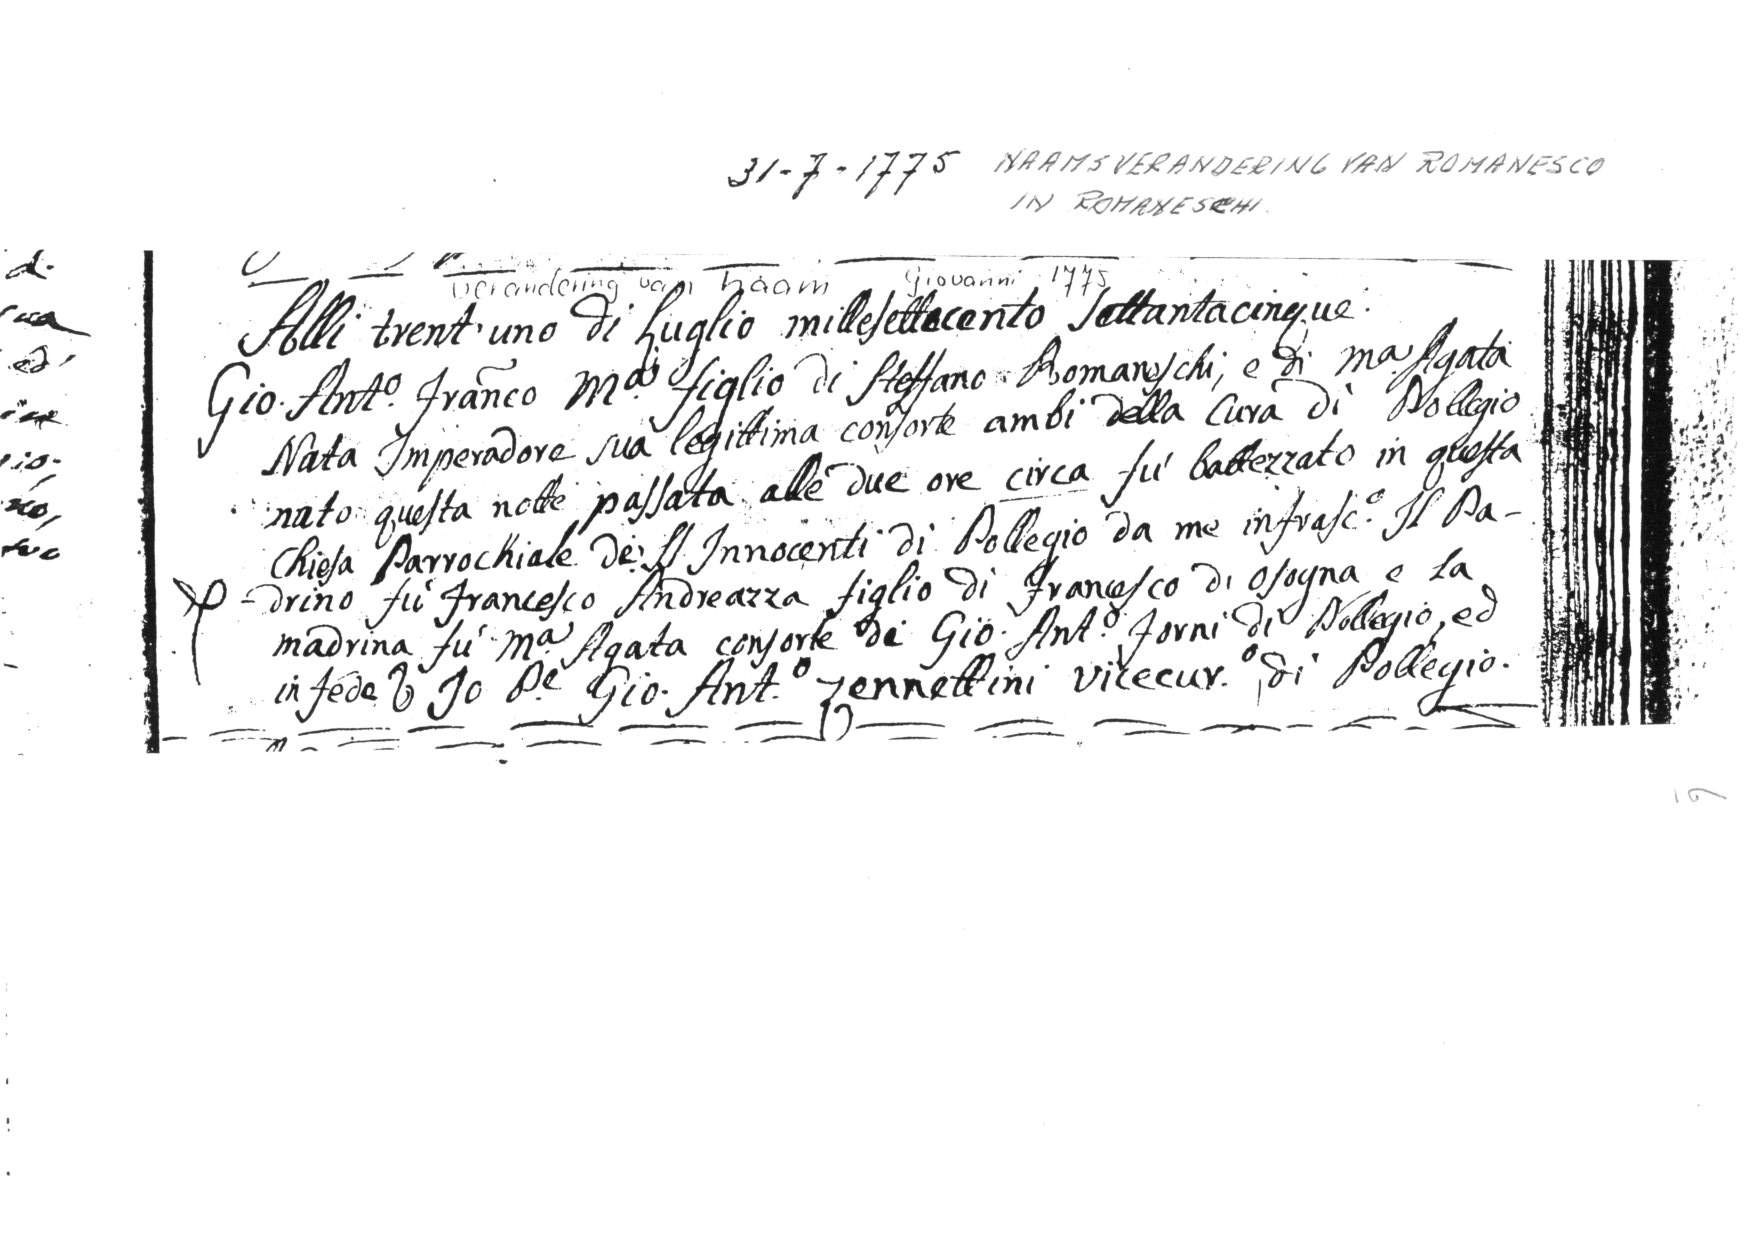 31-7-1775 NAAMSVERANDERING VAN ROMANESCO
IN ROMANESCHI.
verandering van naam Giovanni 1775
Alli trent'uno di Luglio millesettecento settantacinque.
Gio. Ant.º Franco M.ª figlio di Steffano Romaneschi, e di M.ª Agata
Nata Imperadore sua legittima consorte ambi della Cura di Pollegio
nato questa notte passata alle due ore circa fu' battezzato in questa
Chiesa Parrochiale de' SS Innocenti di Pollegio da me infrasc.º Il Pa-
-drino fu' Francesco Andreazza figlio di Francesco di Osogna e la
madrina fu' M.ª Agata consorte di Gio. Ant.º Forni di Pollegio, ed
in fede Io P.e Gio. Ant.º Zennettini vicecur.º di Pollegio.